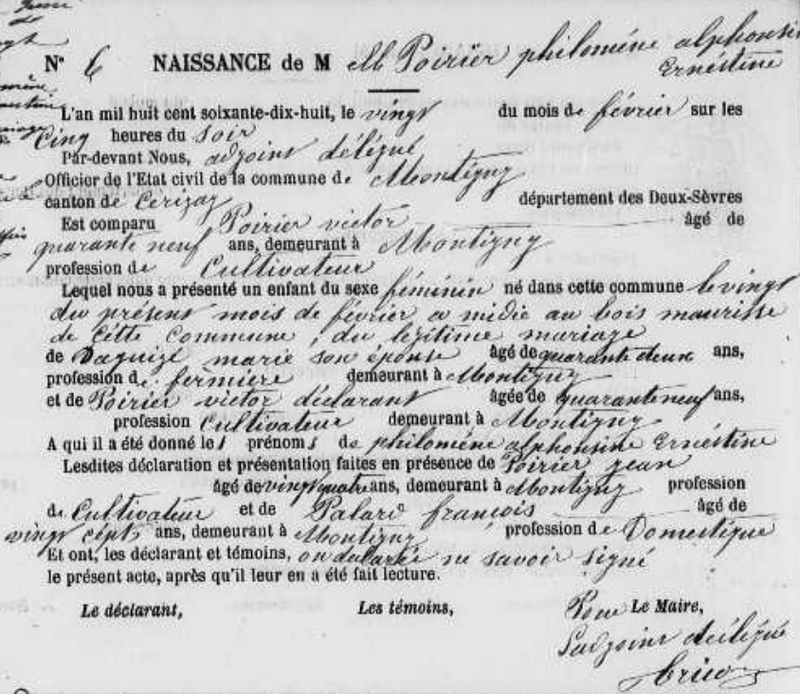 N° 6 NAISSANCE de M elle Poirier philoméne alphonsine
Ernéstine
L'an mil huit cent soixante-dix-huit, le vingt du mois de février sur les
Cinq heures du soir
Par-devant Nous, adjoint délégué
Officier de l'Etat civil de la commune de Montigny
canton de Cerizay département des Deux-Sèvres
Est comparu Poirier victor âgé de
quarante neuf ans, demeurant à Montigny
profession de Cultivateur
Lequel nous a présenté un enfant du sexe féminin né dans cette commune le vingt
du présent mois de février a midie au bois maurisse
de cétte Commune, du légitime mariage
de marie son épouse âgé de quarante deux ans,
profession de fermiere demeurant à Montigny
et de Poirier victor déclarant âgée de quarante neuf ans,
profession Cultivateur demeurant à Montigny
A qui il a été donné les prénoms de philoméne alphonsine Ernéstine
Lesdites déclaration et présentation faites en présence de Poirier jean
âgé de vingt quatre ans, demeurant à Montigny profession
de Cultivateur et de Palard françois âgé de
vingt cépt ans, demeurant à Montigny profession de Domestique
Et ont, les déclarant et témoins, on déclarée ne savoir signé
le présent acte, après qu'il leur en a été fait lecture.
Le déclarant, Les témoins, Pour Le Maire,
L'adjoint délégué